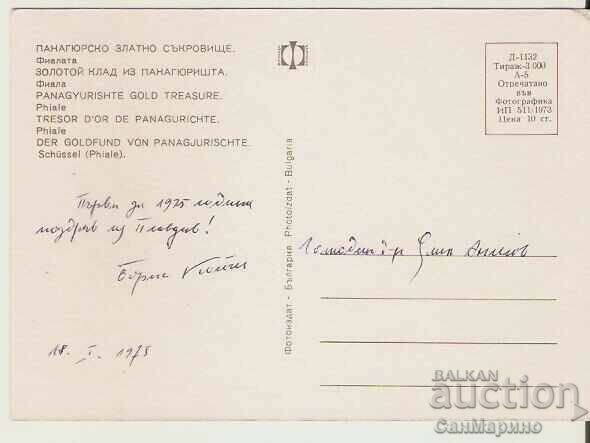 ПАНАГЮРСКО ЗЛАТНО СЪКРОВИЩЕ.
Фиалата
ЗОЛОТОЙ КЛАД ИЗ ПАНАГЮРИШТА.
Фиала
PANAGYURISHTE GOLD TREASURE.
Phiale
TRESOR D'OR DE PANAGURICHTE.
Phiale
DER GOLDFUND VON PANAGJURISCHTE.
Schüssel (Phiale).
Първи за 1975 година
поздрав из Пловдив!
Борис
18. I. 1975
Фотоиздат - България Photoizdat - Bulgaria
Д-1132
Тираж-3 000
А-5
Отпечатано
във
Фотографика
ИП 511/1973
Цена 10 ст.
BALKAN
auction
СанМарино